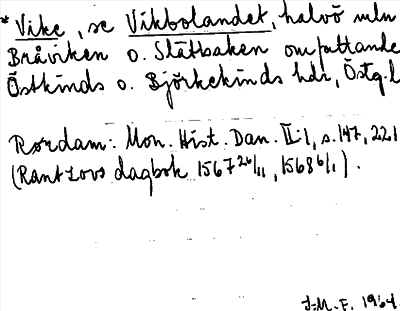 * Vike, se Vikbolandet, halvö mln
Bråviken o. Slätbaken omfattande
Östkinds o. Björkekinds hdr, Östg. l
Rørdam: Mon. Hist. Dan. II:1, s. 147, 221
(Rantzovs dagbok 1567 26/11, 1568 6/1).
J.M.F. 1964